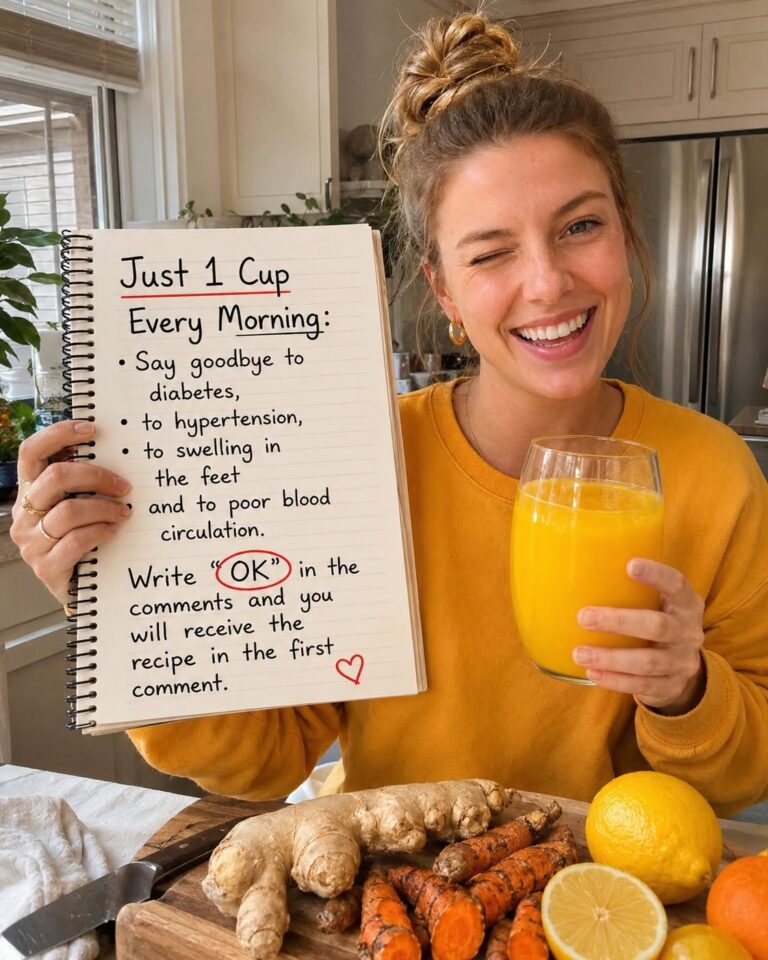 Just 1 Cup
Every Morning:
• Say goodbye to
diabetes,
• to hypertension,
• to swelling in
the feet
• and to poor blood
circulation.
Write “OK” in the
comments and you
will receive the
recipe in the first
comment.